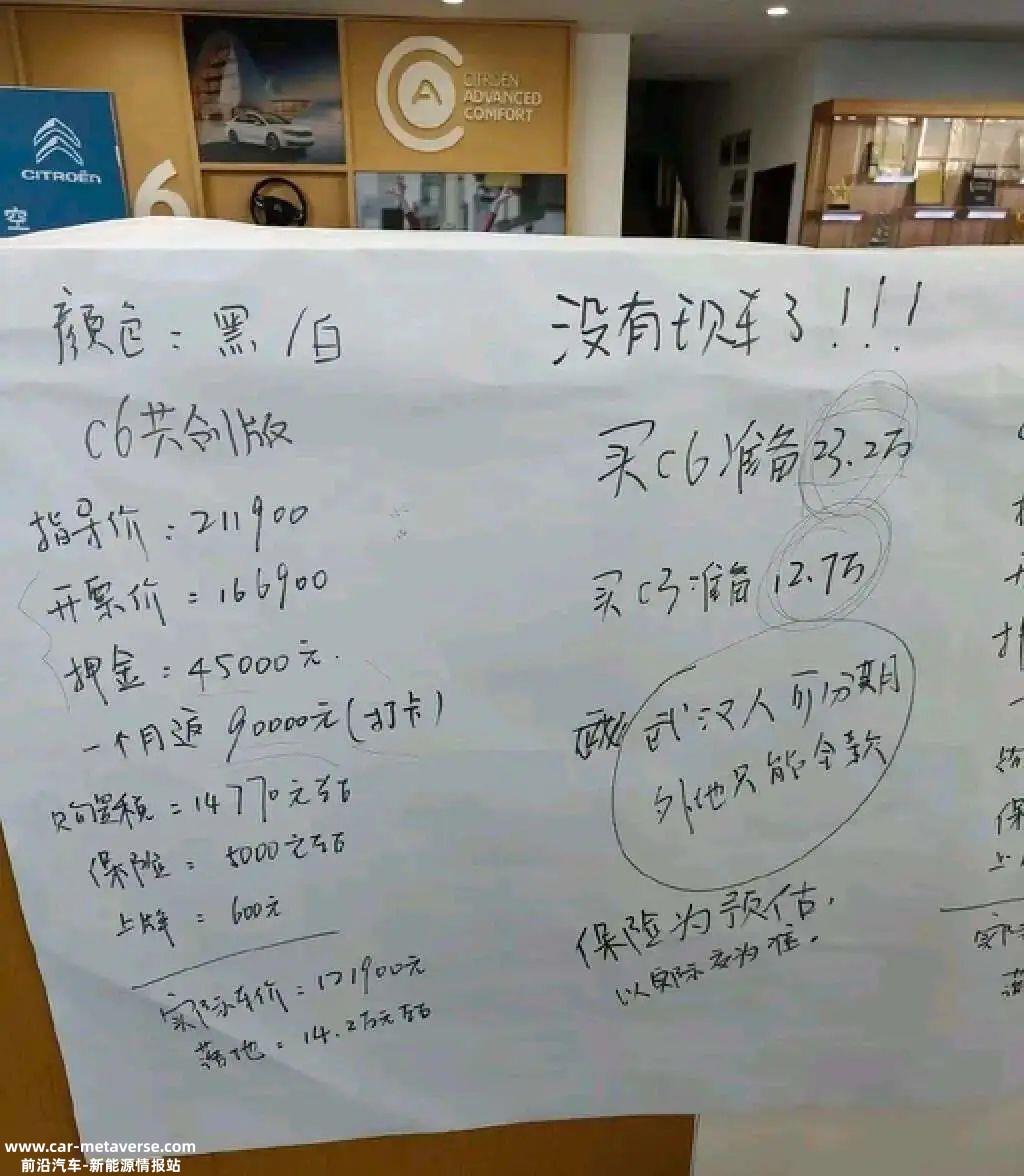 CITROËN
ADVANCED
COMFORT
CITROËN
空
6
颜色：黑/白
C6共创版
指导价：211900
开票价：166900
押金：45000元.
一个月返90000元(打卡)
购置税：14770元左右
保险：8000元左右
上牌：600元
实际车价：121900元
落地：14.2万元左右
没有现车了!!!
买C6准备23.2万
买C3准备12.7万
武汉人可分期
外地只能全款
保险为预估.
以实际交为准.
保
www.car-metaverse.com
前沿汽车-新能源情报站